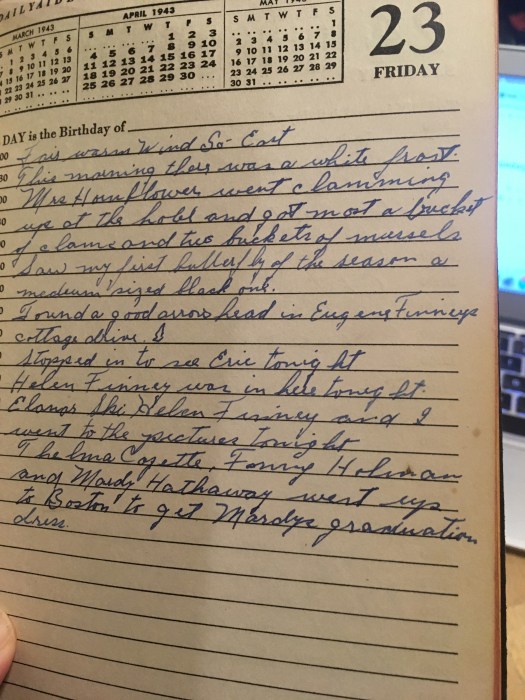 DAILYAIDE
MARCH 1943
S M T W T F S
1 2 3 4 5 6
7 8 9 10 11 12 13
14 15 16 17 18 19 20
21 22 23 24 25 26 27
28 29 30 31
APRIL 1943
S M T W T F S
1 2 3
4 5 6 7 8 9 10
11 12 13 14 15 16 17
18 19 20 21 22 23 24
25 26 27 28 29 30
MAY 194
S M T W T F S
1
2 3 4 5 6 7 8
9 10 11 12 13 14 15
16 17 18 19 20 21 22
23 24 25 26 27 28 29
30 31
23
FRIDAY
DAY is the Birthday of
Fair warm Wind So-East
This morning ther was a white frost.
Mrs Hornflower went clamming
up at the hotel and got most a bucket
of clams and two buckets of mussels
Saw my first butterfly of the season a
medeum sized black one.
Found a good arrow head in Eugene Finneys
cottage drive.
Stopped in to see Eric tonight
Helen Finney was in here tonight.
Elanor Ski, Helen Finney and I
went to the pictures tonight
Thelma Cozette, Fanny Holman
and Mardy Hathaway went up
to Boston to get Mardys graduation
dress.